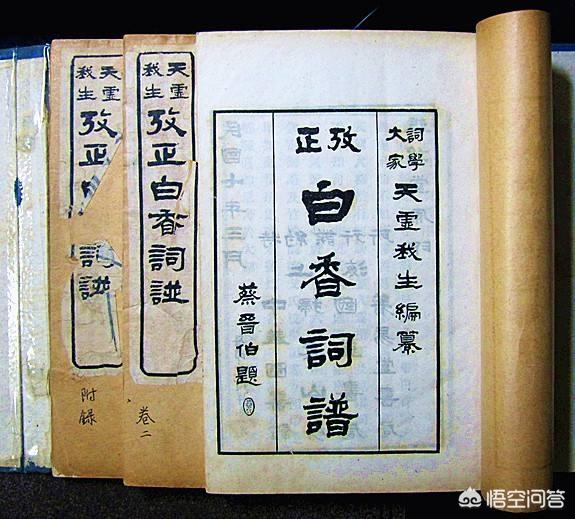 詞學大家 天虛我生編纂
攷正
白香詞譜
蔡晉伯題
天虛我生
攷正白香詞譜
卷二
天虛我生
攷正 詞譜
附錄
悟空问答